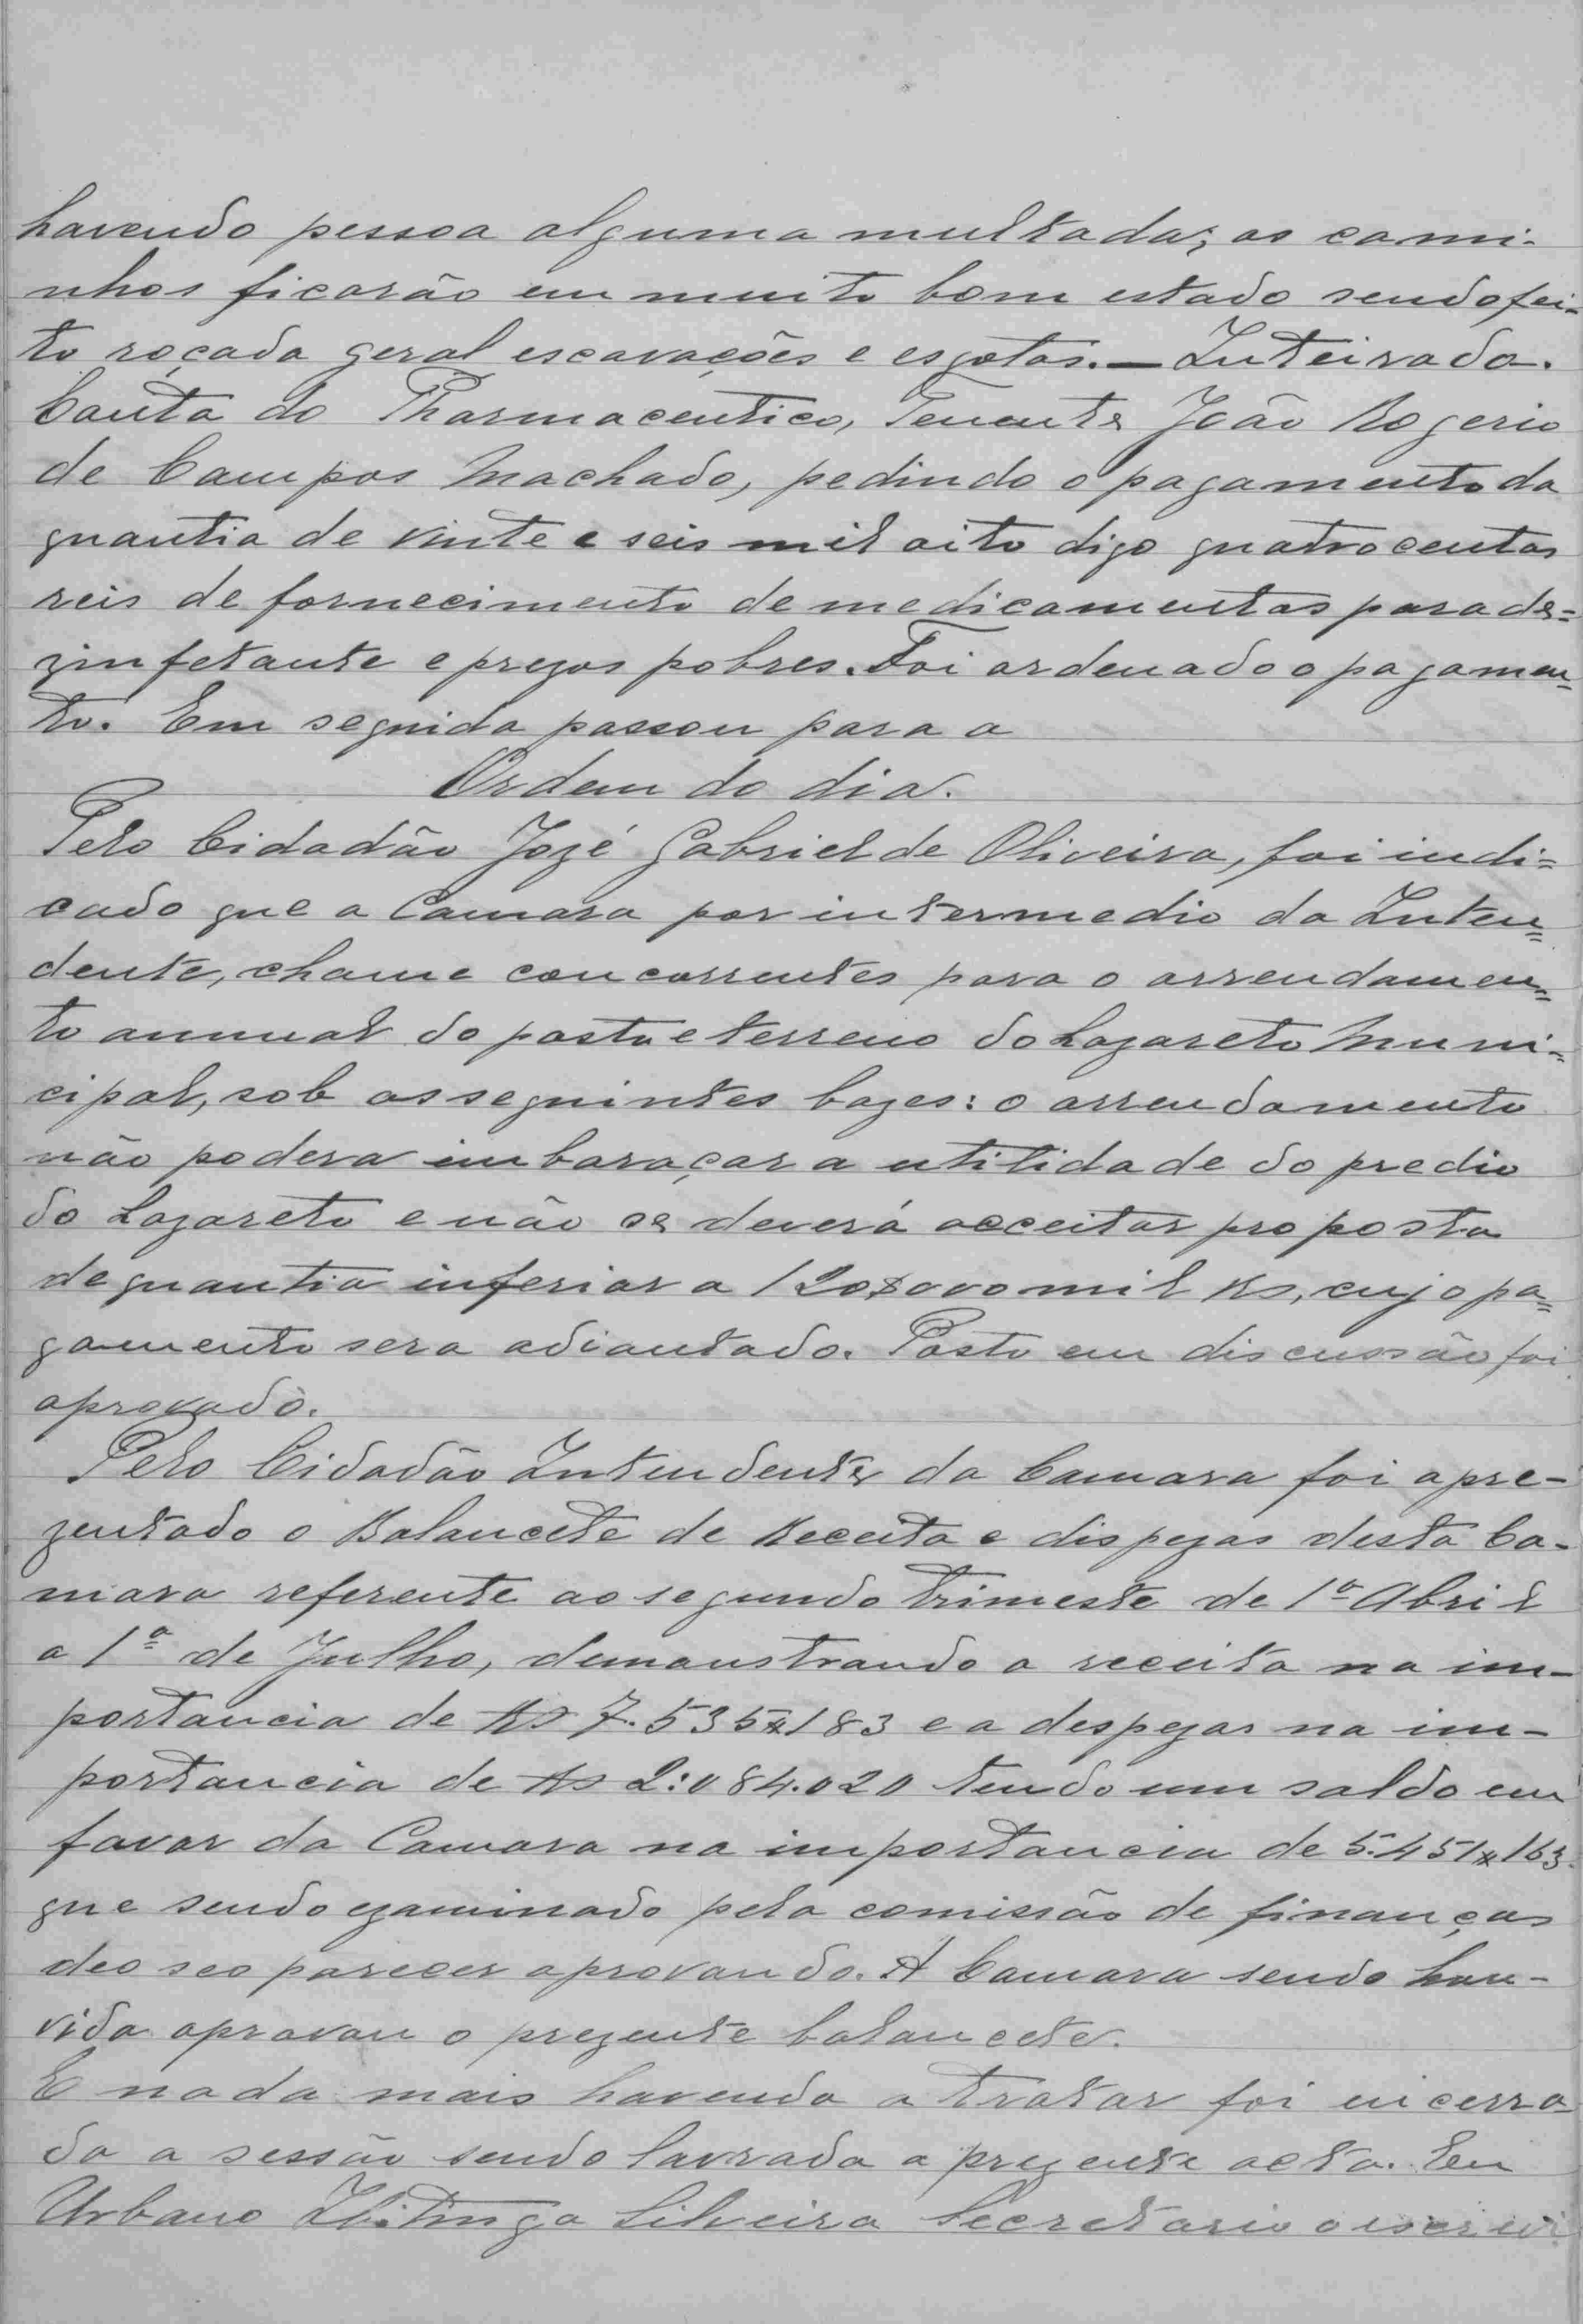 havendo pessoa alguma multada; os cami-
nhos ficarão em muito bom estado sendo fei-
to roçada geral escavações e esgotos. — Inteirada.
Conta do Pharmaceutico, Tenente João Rogerio
de Campos Machado, pedindo o pagamento da
quantia de vinte e seis mil oito digo quatrocentos
reis de fornecimento de medicamentos para de=
zinfetante e prezos pobres. Foi ordenado o pagamen=
to. Em seguida passou para a
Ordem do dia.
Pelo Cidadão Jozé Gabriel de Oliveira, foi indi=
cado que a Camara por intermedio do Inten=
dente, chame concorrentes para o arrendamen=
to annual do pasto e terreno do Lazareto Muni=
cipal, sob as seguintes bazes: o arrendamento
não podera imbaraçar a utilidade do predio
do Lazareto e não se deverá acceitar proposta
de quantia inferior a 120$000 mil Rs, cujo pa=
gamento sera adiantado. Posto em discussão foi
aprovado.
Pelo Cidadão Intendente da Camara foi apre-
zentado o Balancete de Receita e dispezas desta Ca-
mara referente ao segundo trimeste de 1º Abril
a 1º de Julho, demonstrando a receita na im-
portancia de Rs 7.535$183 e a despezas na im-
portancia de Rs 2:084.020 tendo um saldo em
favor da Camara na importancia de 5.451$163.
que sendo ezaminado pela comissão de finanças
deo seo parecer aprovando. A Camara sendo hou-
vida aprovou o prezente balancete.
E nada mais havendo a tratar foi encerra-
da a sessão sendo lavrada a prezente acta. Eu
Urbano Ibitinga Silveira Secretario o escrevi